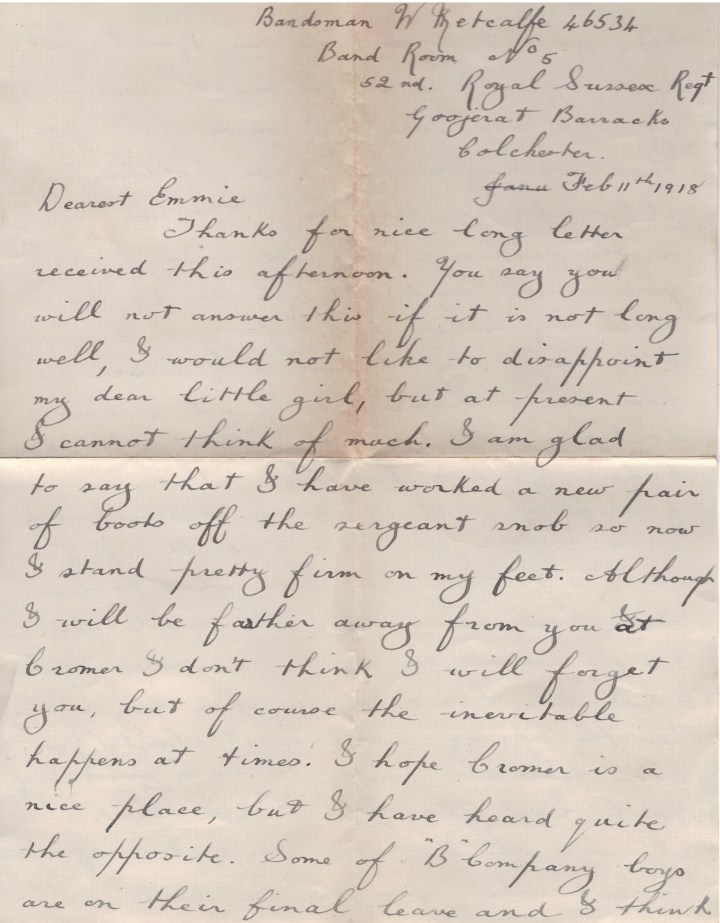 Bandsman W Metcalfe 46534
Band Room No 5
52nd. Royal Sussex Regt
Goojerat Barracks
Colchester.
Janu Feb 11th 1918
Dearest Emmie
Thanks for nice long letter
received this afternoon. You say you
will not answer this if it is not long
well, I would not like to disappoint
my dear little girl, but at present
I cannot think of much. I am glad
to say that I have worked a new pair
of boots off the sergeant snob so now
I stand pretty firm on my feet. Although
I will be farther away from you at
Cromer I don't think I will forget
you, but of course the inevitable
happens at times. I hope Cromer is a
nice place, but I have heard quite
the opposite. Some of "B" Company boys
are on their final leave and I think